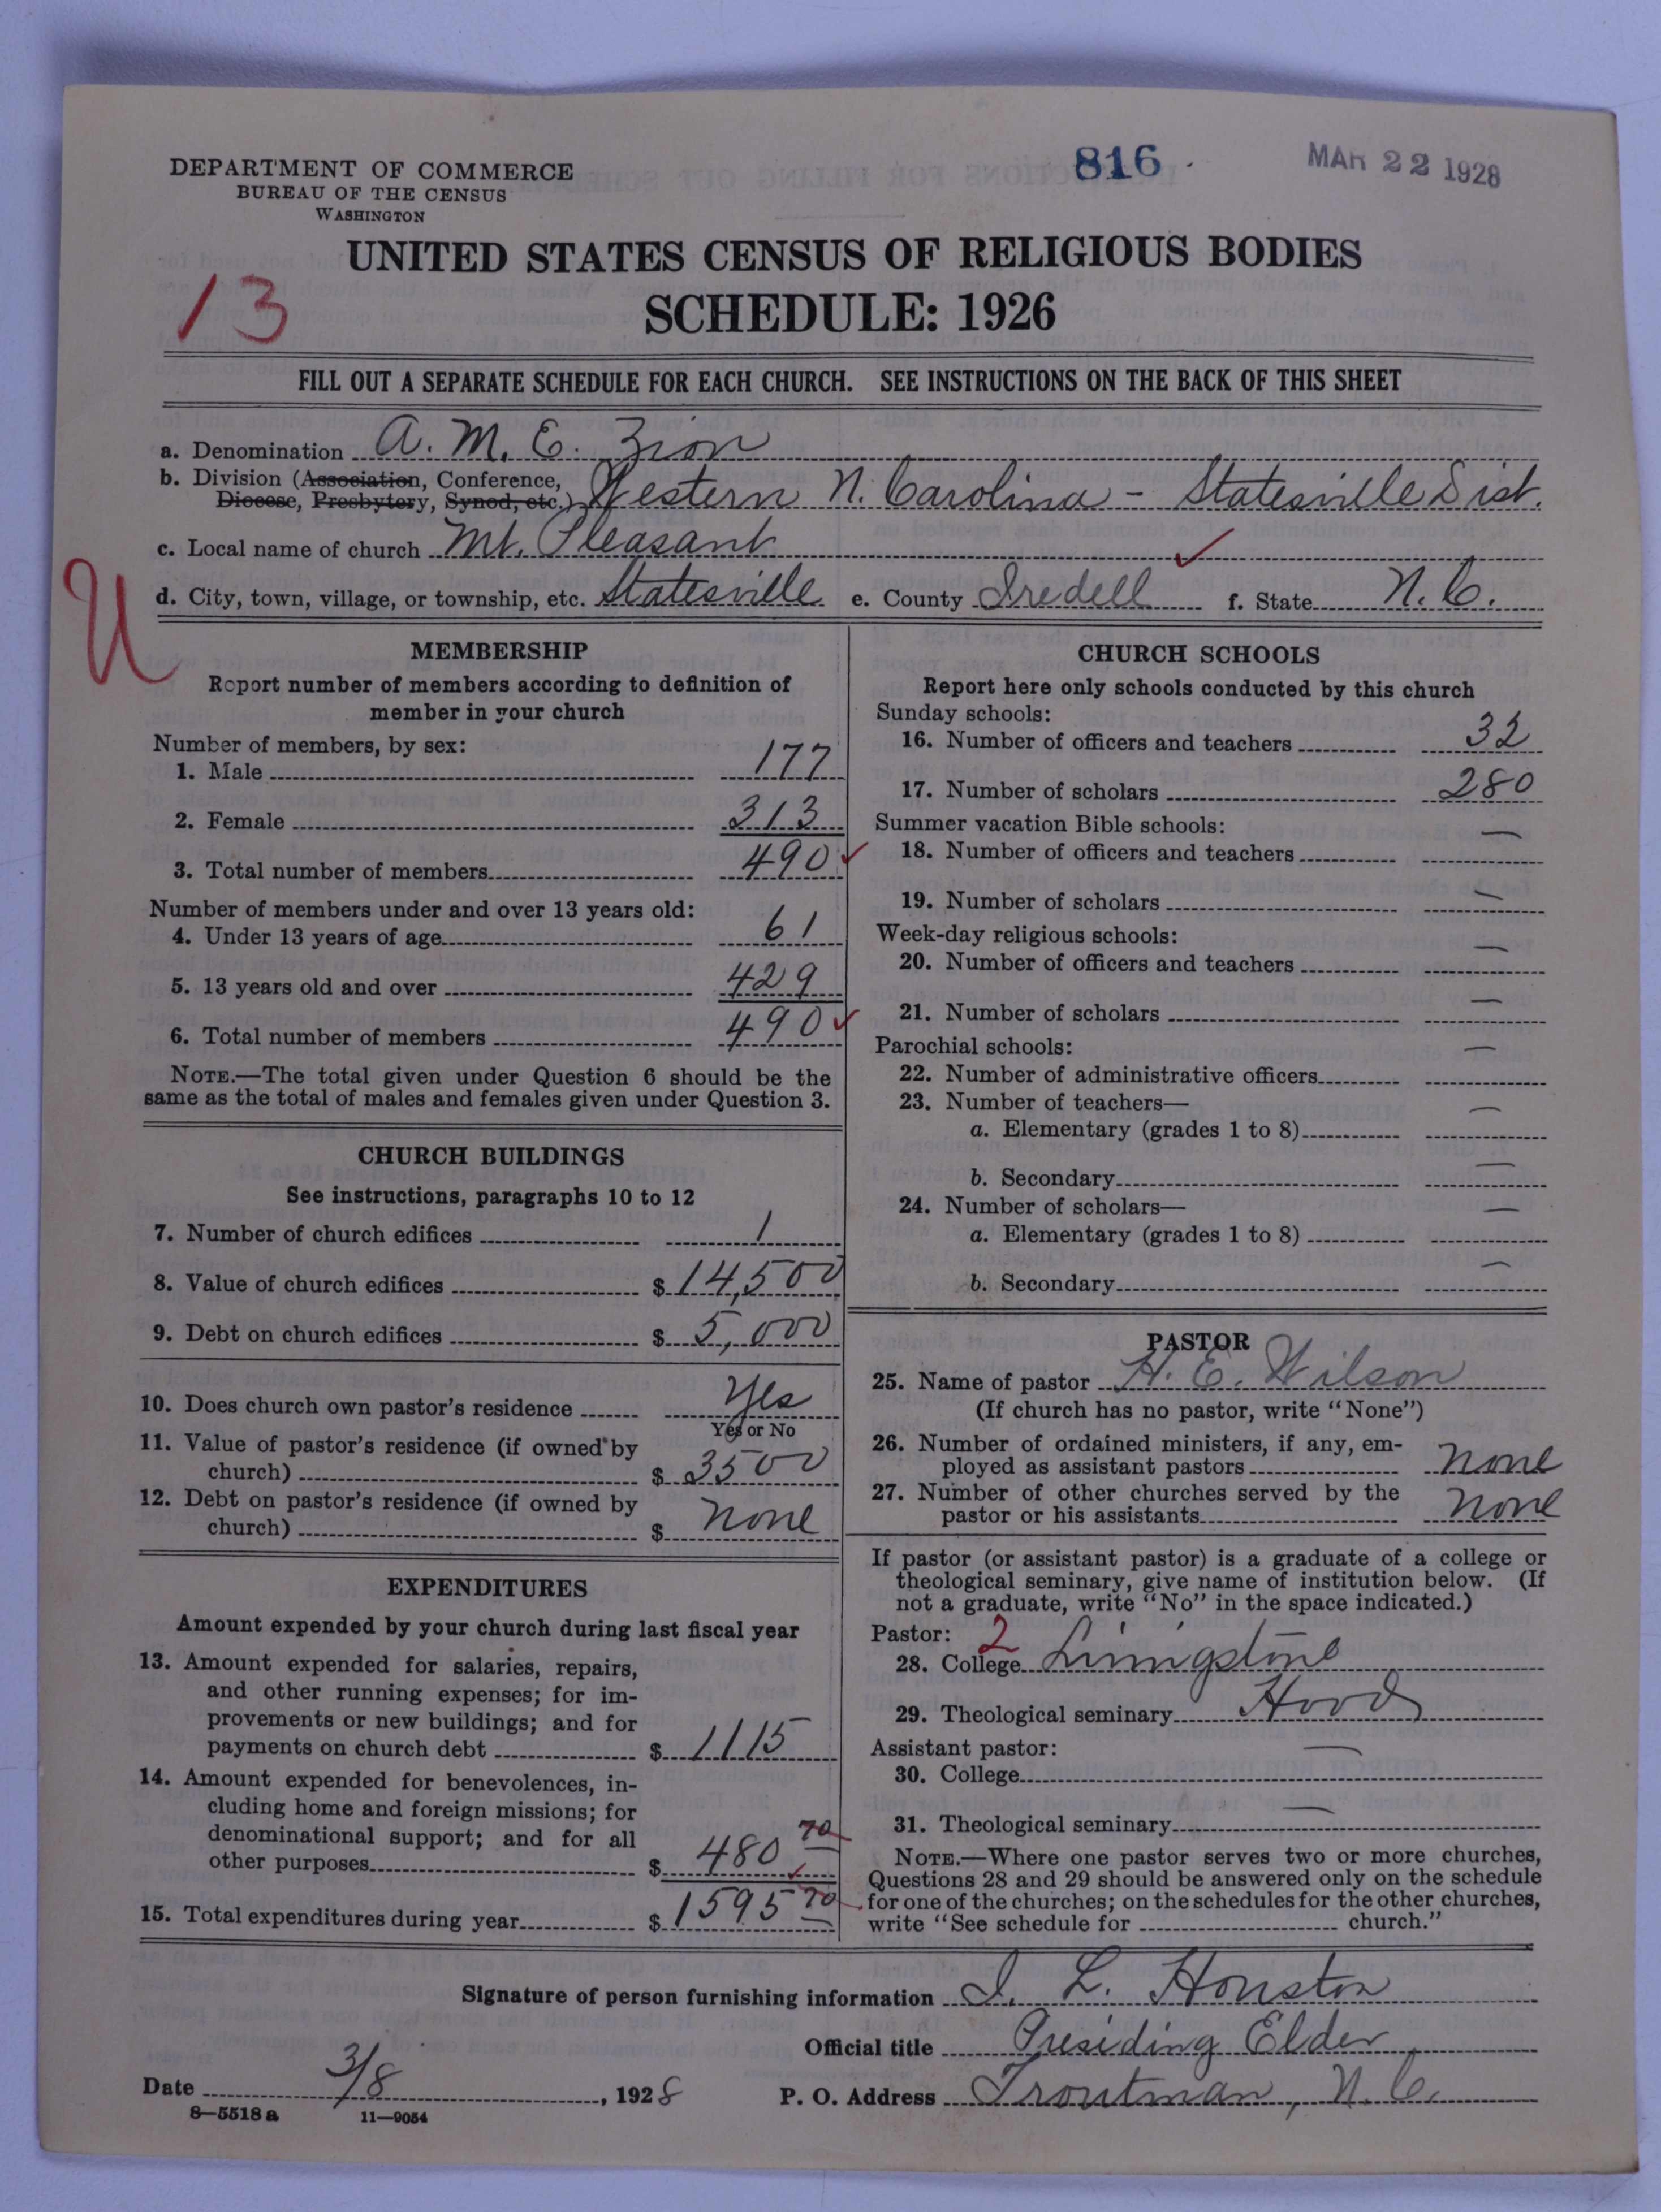 DEPARTMENT OF COMMERCE
BUREAU OF THE CENSUS
WASHINGTON
816
MAR 22 1928
UNITED STATES CENSUS OF RELIGIOUS BODIES
SCHEDULE: 1926
13
FILL OUT A SEPARATE SCHEDULE FOR EACH CHURCH. SEE INSTRUCTIONS ON THE BACK OF THIS SHEET
a. Denomination A. M. E. Zion
b. Division (Association, Conference,
Diocese, Presbytery, Synod, etc.) Western N. Carolina - Statesville Dist.
c. Local name of church Mt. Pleasant
U
d. City, town, village, or township, etc. Statesville e. County Iredell f. State N. C.
MEMBERSHIP
Report number of members according to definition of
member in your church
Number of members, by sex:
1. Male 177
2. Female 313
3. Total number of members 490
Number of members under and over 13 years old:
4. Under 13 years of age 61
5. 13 years old and over 429
6. Total number of members 490
NOTE.—The total given under Question 6 should be the
same as the total of males and females given under Question 3.
CHURCH BUILDINGS
See instructions, paragraphs 10 to 12
7. Number of church edifices 1
8. Value of church edifices $ 14,500
9. Debt on church edifices $ 5,000
10. Does church own pastor's residence Yes
Yes or No
11. Value of pastor's residence (if owned by
church) $ 3500
12. Debt on pastor's residence (if owned by
church) $ none
EXPENDITURES
Amount expended by your church during last fiscal year
13. Amount expended for salaries, repairs,
and other running expenses; for im-
provements or new buildings; and for
payments on church debt $ 1115
14. Amount expended for benevolences, in-
cluding home and foreign missions; for
denominational support; and for all
other purposes $ 480 70
15. Total expenditures during year $ 1595 70
CHURCH SCHOOLS
Report here only schools conducted by this church
Sunday schools:
16. Number of officers and teachers 32
17. Number of scholars 280
Summer vacation Bible schools:
18. Number of officers and teachers —
19. Number of scholars —
Week-day religious schools:
20. Number of officers and teachers —
21. Number of scholars —
Parochial schools:
22. Number of administrative officers —
23. Number of teachers—
a. Elementary (grades 1 to 8) —
b. Secondary —
24. Number of scholars—
a. Elementary (grades 1 to 8) —
b. Secondary —
PASTOR
25. Name of pastor H. E. Wilson
(If church has no pastor, write "None")
26. Number of ordained ministers, if any, em-
ployed as assistant pastors none
27. Number of other churches served by the
pastor or his assistants none
If pastor (or assistant pastor) is a graduate of a college or
theological seminary, give name of institution below. (If
not a graduate, write "No" in the space indicated.)
Pastor: 2
28. College Livingstone
29. Theological seminary Hood
Assistant pastor:
30. College —
31. Theological seminary —
NOTE.—Where one pastor serves two or more churches,
Questions 28 and 29 should be answered only on the schedule
for one of the churches; on the schedules for the other churches,
write "See schedule for church."
Signature of person furnishing information I. L. Houston
Official title Presiding Elder
Date 3/8, 1928 P. O. Address Troutman, N. C.
8—5518 a 11—9054